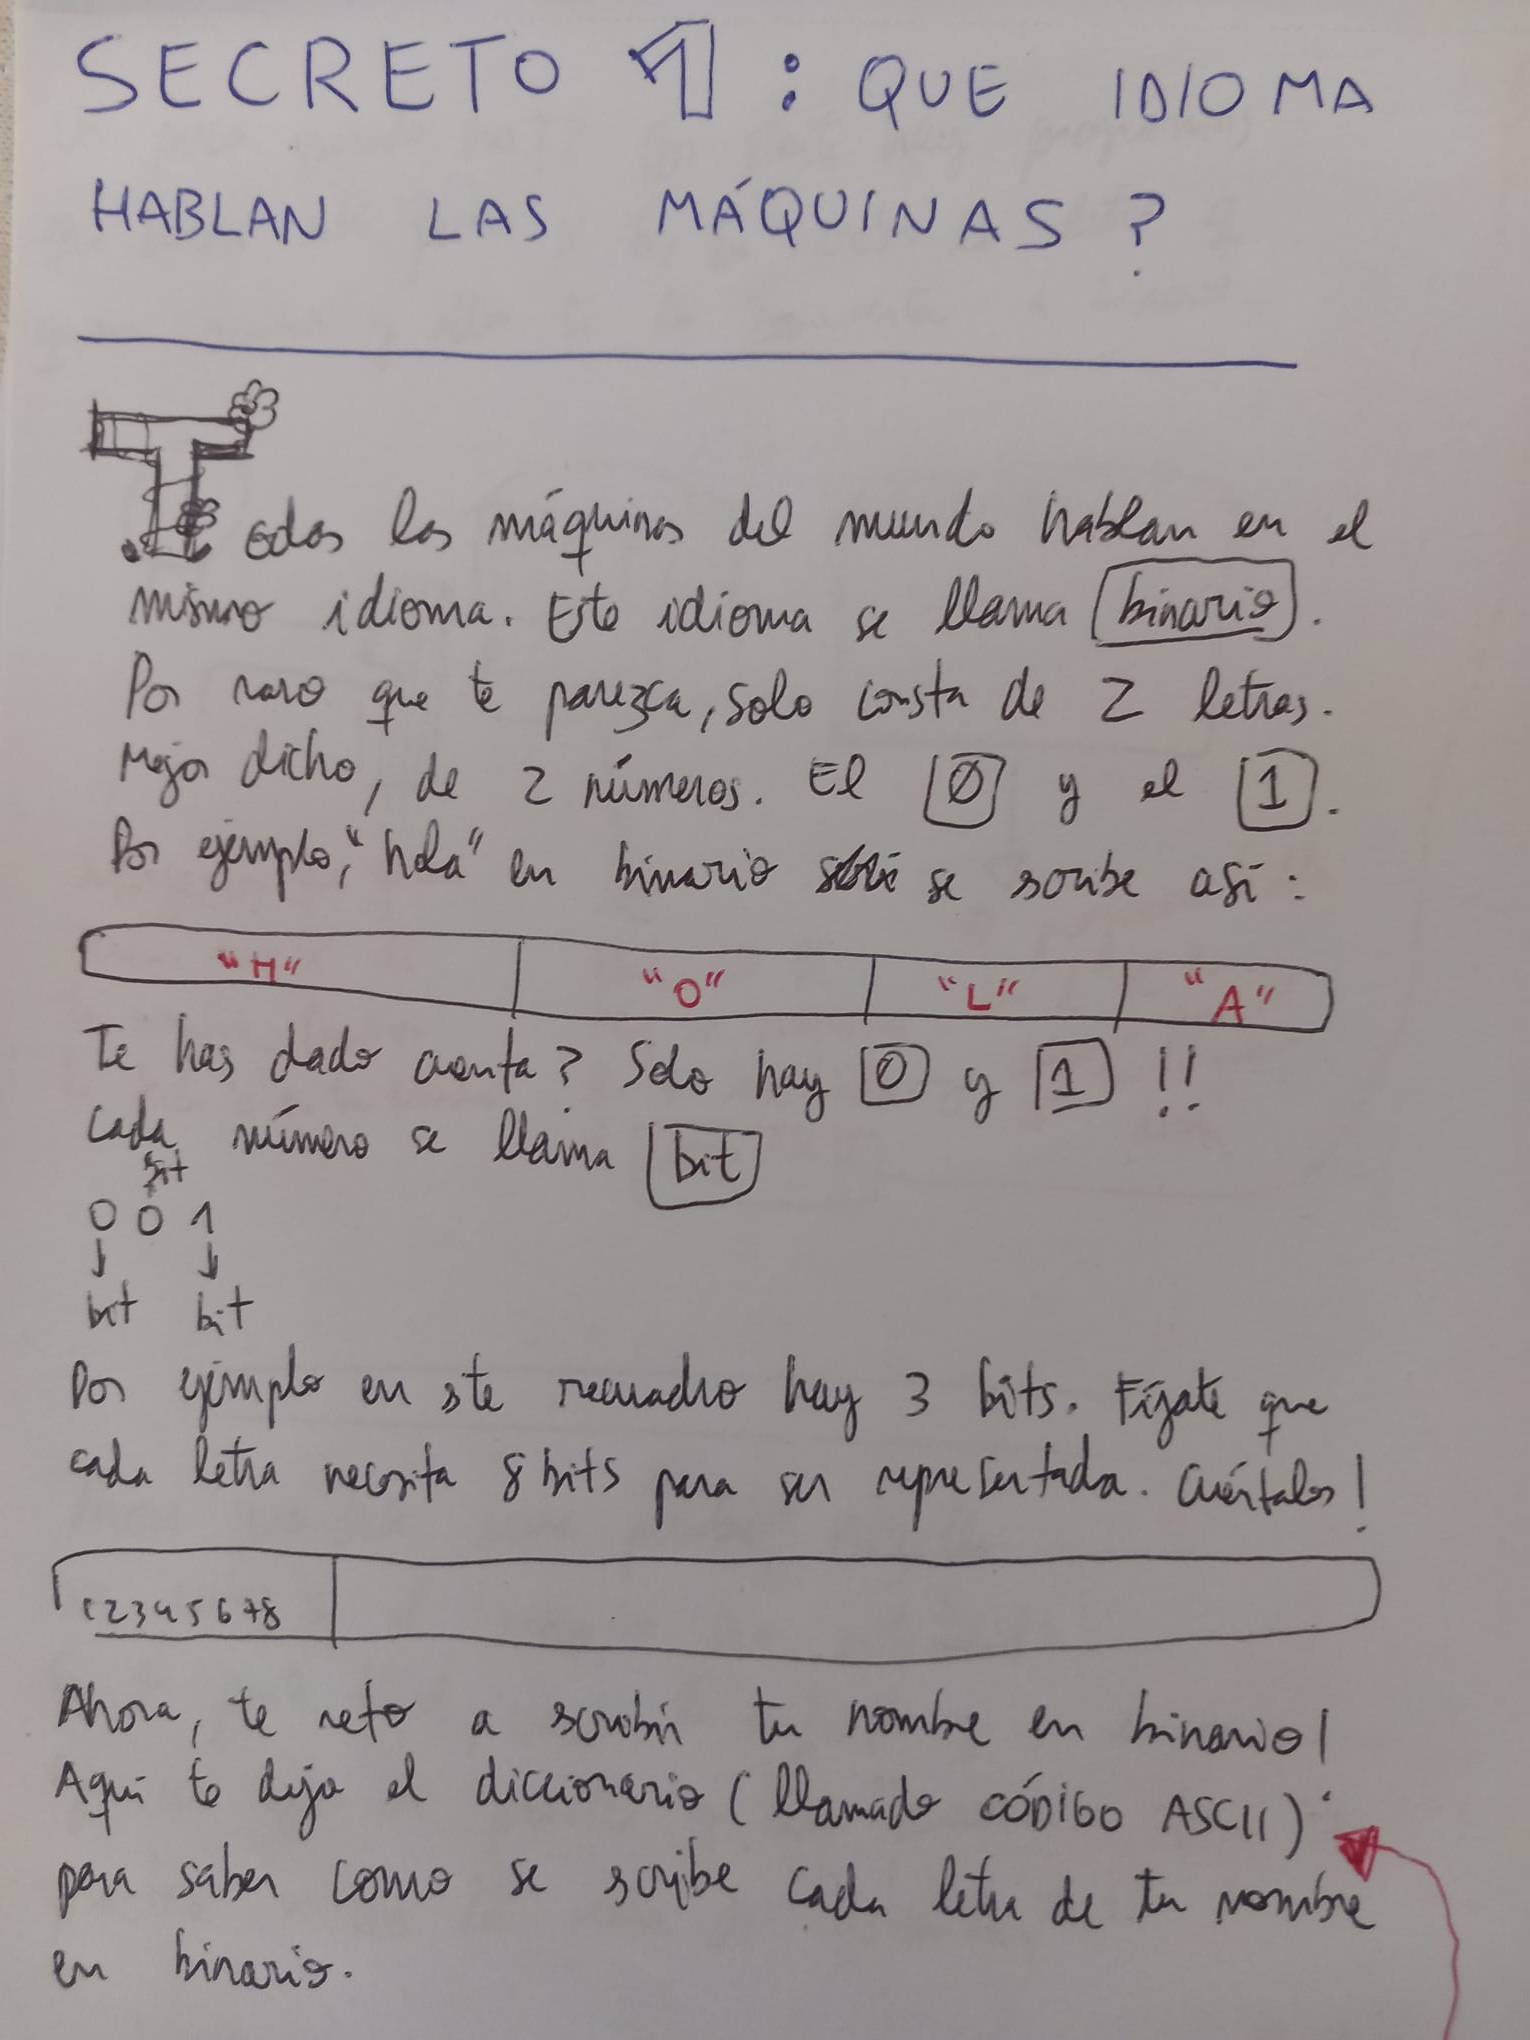 SECRETO 1: QUE IDIOMA
HABLAN LAS MÁQUINAS?
Todas las máquinas del mundo hablan en el
mismo idioma. Este idioma se llama binario.
Por raro que te parezca, solo consta de 2 letras.
Mejor dicho, de 2 números. El 0 y el 1.
Por ejemplo, "hola" en binario se scribe así:
"H" "O" "L" "A"
Te has dado cuenta? Solo hay 0 y 1 !!
Cada número se llama bit
bit
0 0 1
bit bit
Por ejemplo en ste recuadro hay 3 bits. Fíjate que
cada letra necesita 8 bits para ser representada. Cuéntalos!
12345678
Ahora, te reto a scribir tu nombre en binario!
Aquí te dejo el diccionario (llamado CÓDIGO ASCII)
para saber como se scribe cada letra de tu nombre
en binario.